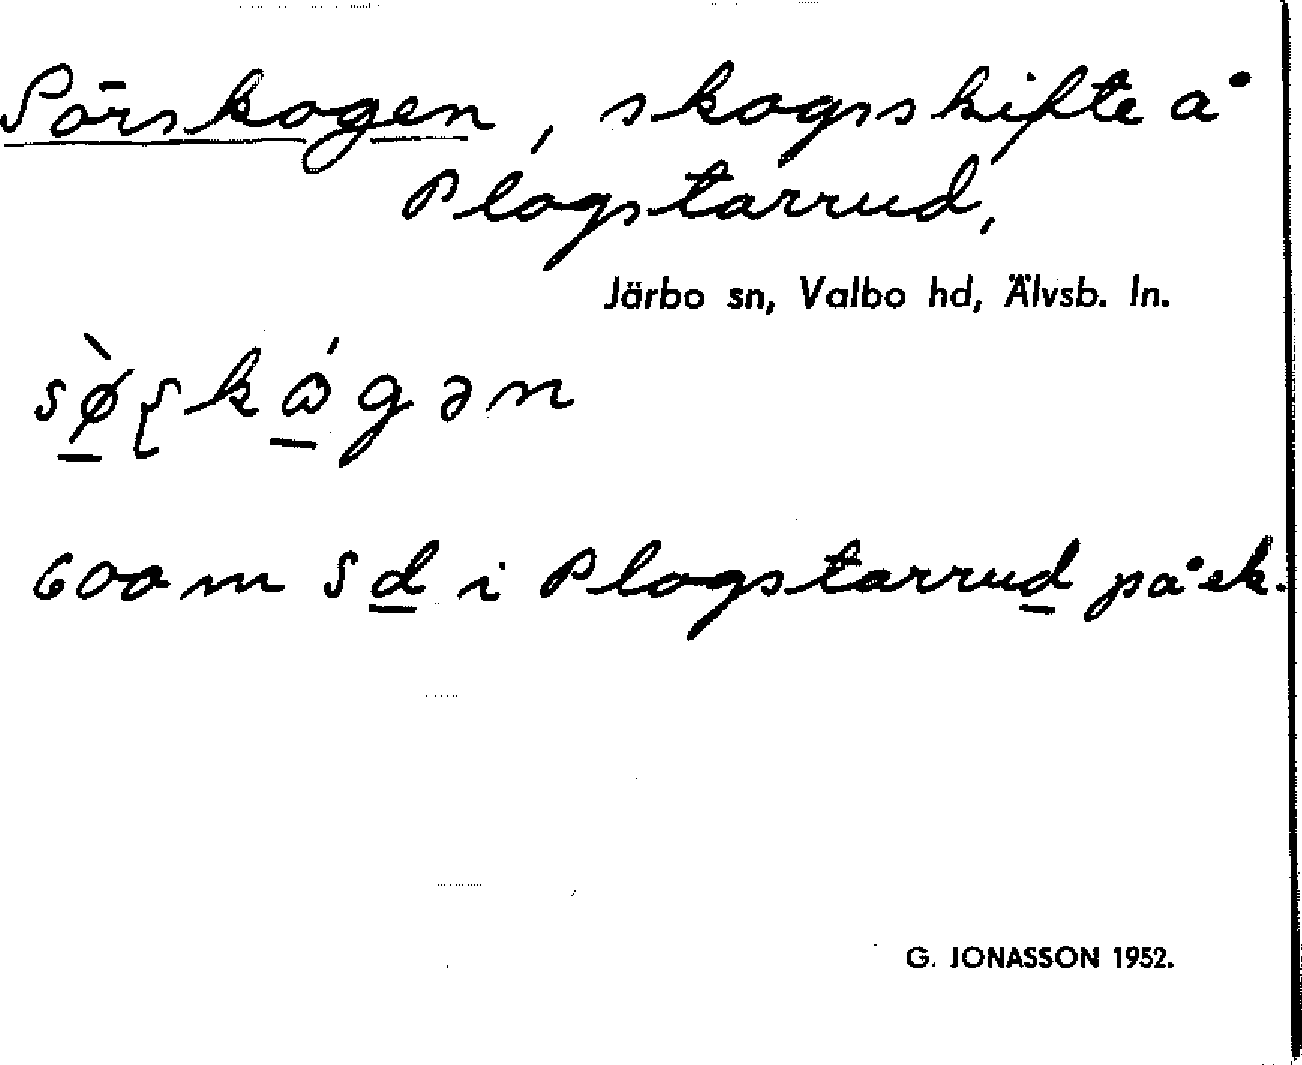 Sörskogen, skogsskifte å
Plogstarrud,
Järbo sn, Valbo hd, Älvsb. ln.
600 m S d i Plogstarrud på ek.
G. JONASSON 1952.